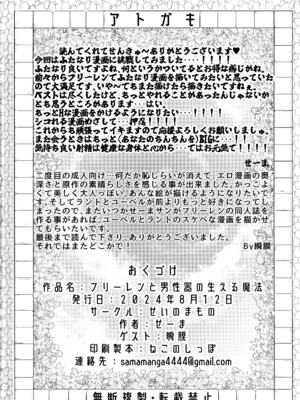 アトガキ
読んでくれてせんきゅ〜ありがとうございます♥
今回はふたなり漫画に挑戦してみました…!!!!
ふたなり良いですよね。何というかついてるとお得な感じがね。
前々からフリーレンでふたなり漫画を描いてみたいと思っていた
ので大満足です。いや〜でもまだ描けたら描きたいですねぇ。
ベストは尽くしたけど、もっとやれることがあったんじゃないか
とも思うところがあります…はい。
もっとH漫画がかけるようになりたい…!!!!
シコれる漫画めざして…押忍…!!!!
これからも頑張ってイキますので応援よろしくお願いしまーす。
気持ち良い射精は健康な身体と心から……ではお元気で!!!!
せーま
二度目の成人向け…何だか恥じらいが消えて、エロ漫画の奥
深さと原作の素晴らしさを感じる事が出来ました。かっこよ
くて美しく大人っぽい、あんな絵が描けるようになりたいで
す。そしてラントとユーベルが前よりもっと好きになってしま
ったので、またいつかせーまサンがフリーレンの同人誌を
作る事があれば、ユーベルとラントのスケベな漫画を描かせ
てもらいたいです。
最後まで読んで下さり、ありがとうございました。
それではまたどこかで!
By 瞬膜
おくづけ
作品名：フリーレンと男性器の生える魔法
発行日：2024年8月12日
サークル：せいのまもの
作者：せーま
ゲスト：瞬膜
印刷製本：ねこのしっぽ
連絡先：samamanga4444@gmail.com
無断複製・転載禁止